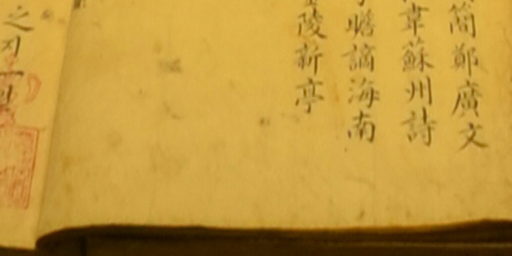 簡鄭廣文
韋蘇州詩
瞻謫海南
陵新亭
之